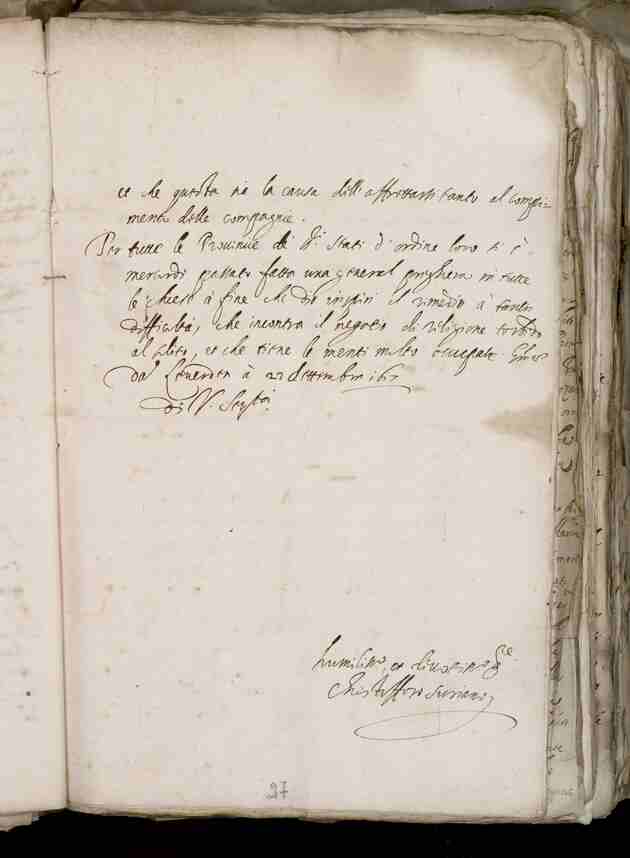 et che questa sia la causa dell'affrettarsi tanto al compi-
mento delle compagnie.
Per tutte le Provincie di S.ri Stati d'ordine loro si è
mercordi passato fatto una general preghiera in tutte
le chiese à fine che dio inspiri il rimedio à tante
difficoltà, che incontra il negotio di religione
al solito, et che tiene le menti molto occupate.
Da à 27 settembre 1617
Di V. Ser.tà
humiliss.o, et devotiss.o se.re
Christofforo Suriano
27